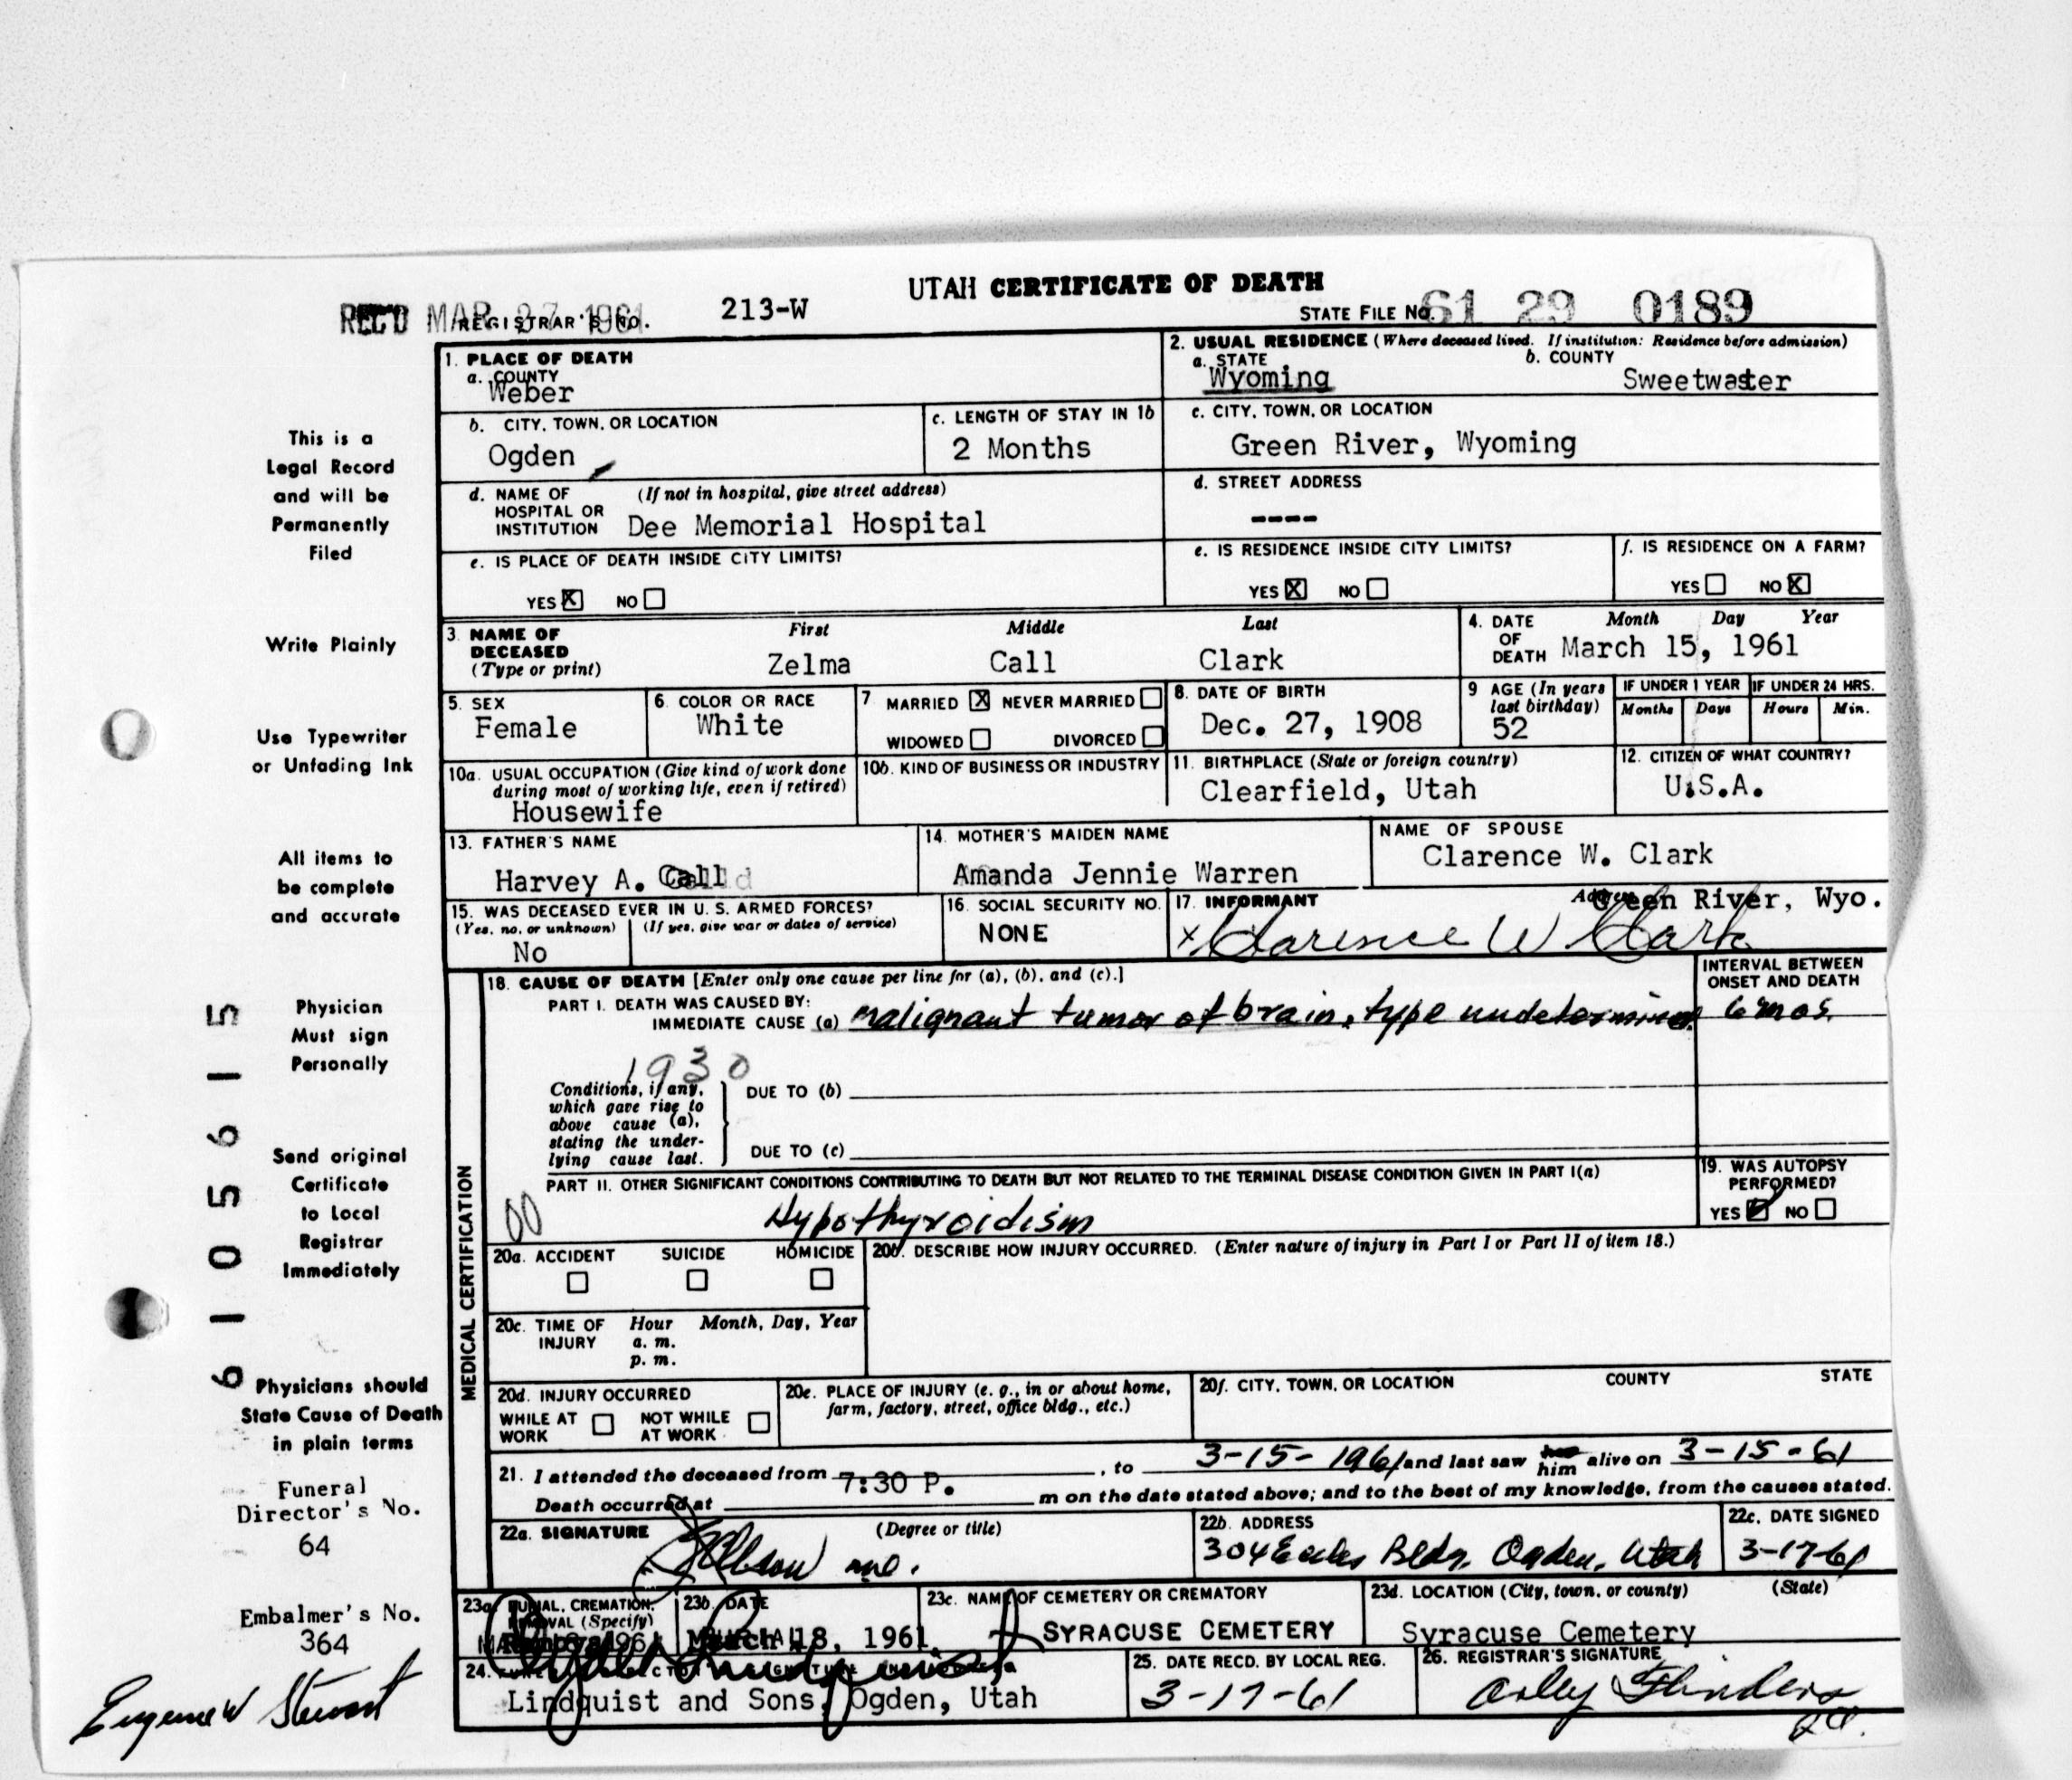 UTAH CERTIFICATE OF DEATH
REC'D MAR 27 1961
REGISTRAR'S NO. 213-W
STATE FILE NO. 61 29 0189
1. PLACE OF DEATH
a. COUNTY
Weber
2. USUAL RESIDENCE (Where deceased lived. If institution: Residence before admission)
a. STATE b. COUNTY
Wyoming Sweetwater
b. CITY, TOWN, OR LOCATION
Ogden
c. LENGTH OF STAY IN 1b
2 Months
c. CITY, TOWN, OR LOCATION
Green River, Wyoming
d. NAME OF (If not in hospital, give street address)
HOSPITAL OR
INSTITUTION Dee Memorial Hospital
d. STREET ADDRESS
----
e. IS PLACE OF DEATH INSIDE CITY LIMITS?
YES X NO
e. IS RESIDENCE INSIDE CITY LIMITS?
YES X NO
f. IS RESIDENCE ON A FARM?
YES NO X
3. NAME OF DECEASED (Type or print)
First Middle Last
Zelma Call Clark
4. DATE OF DEATH Month Day Year
March 15, 1961
5. SEX
Female
6. COLOR OR RACE
White
7 MARRIED X NEVER MARRIED
WIDOWED DIVORCED
8. DATE OF BIRTH
Dec. 27, 1908
9 AGE (In years last birthday)
52
IF UNDER 1 YEAR IF UNDER 24 HRS.
Months Days Hours Min.
10a. USUAL OCCUPATION (Give kind of work done
during most of working life, even if retired)
Housewife
10b. KIND OF BUSINESS OR INDUSTRY
11. BIRTHPLACE (State or foreign country)
Clearfield, Utah
12. CITIZEN OF WHAT COUNTRY?
U.S.A.
13. FATHER'S NAME
Harvey A. Call
14. MOTHER'S MAIDEN NAME
Amanda Jennie Warren
NAME OF SPOUSE
Clarence W. Clark
15. WAS DECEASED EVER IN U. S. ARMED FORCES?
(Yes, no, or unknown) (If yes, give war or dates of service)
No
16. SOCIAL SECURITY NO.
NONE
17. INFORMANT Address Green River, Wyo.
x Clarence W Clark
MEDICAL CERTIFICATION
18. CAUSE OF DEATH [Enter only one cause per line for (a), (b), and (c).]
INTERVAL BETWEEN
ONSET AND DEATH
PART I. DEATH WAS CAUSED BY:
IMMEDIATE CAUSE (a) malignant tumor of brain, type undetermined 6 mos.
1930
Conditions, if any,
which gave rise to
above cause (a),
stating the under-
lying cause last.
DUE TO (b)
DUE TO (c)
PART II. OTHER SIGNIFICANT CONDITIONS CONTRIBUTING TO DEATH BUT NOT RELATED TO THE TERMINAL DISEASE CONDITION GIVEN IN PART I(a)
00 Hypothyroidism
19. WAS AUTOPSY
PERFORMED?
YES NO
20a. ACCIDENT SUICIDE HOMICIDE
20b. DESCRIBE HOW INJURY OCCURRED. (Enter nature of injury in Part I or Part II of item 18.)
20c. TIME OF INJURY Hour Month, Day, Year
a. m.
p. m.
20d. INJURY OCCURRED
WHILE AT WORK NOT WHILE AT WORK
20e. PLACE OF INJURY (e. g., in or about home,
farm, factory, street, office bldg., etc.)
20f. CITY, TOWN, OR LOCATION COUNTY STATE
21. I attended the deceased from , to 3-15-1961 and last saw him alive on 3-15-61
Death occurred at 7:30 P. m on the date stated above; and to the best of my knowledge, from the causes stated.
22a. SIGNATURE (Degree or title)
22b. ADDRESS
304 Eccles Bldg. Ogden, Utah
22c. DATE SIGNED
3-17-61
23a. BURIAL, CREMATION,
REMOVAL (Specify)
Removal
23b. DATE
March 18, 1961
23c. NAME OF CEMETERY OR CREMATORY
SYRACUSE CEMETERY
23d. LOCATION (City, town, or county) (State)
Syracuse Cemetery
24.
Lindquist and Sons, Ogden, Utah
25. DATE RECD. BY LOCAL REG.
3-17-61
26. REGISTRAR'S SIGNATURE
This is a
Legal Record
and will be
Permanently
Filed
Write Plainly
Use Typewriter
or Unfading Ink
All items to
be complete
and accurate
Physician
Must sign
Personally
Send original
Certificate
to Local
Registrar
Immediately
Physicians should
State Cause of Death
in plain terms
Funeral
Director's No.
64
Embalmer's No.
364
Eugene W Stewart
6105615